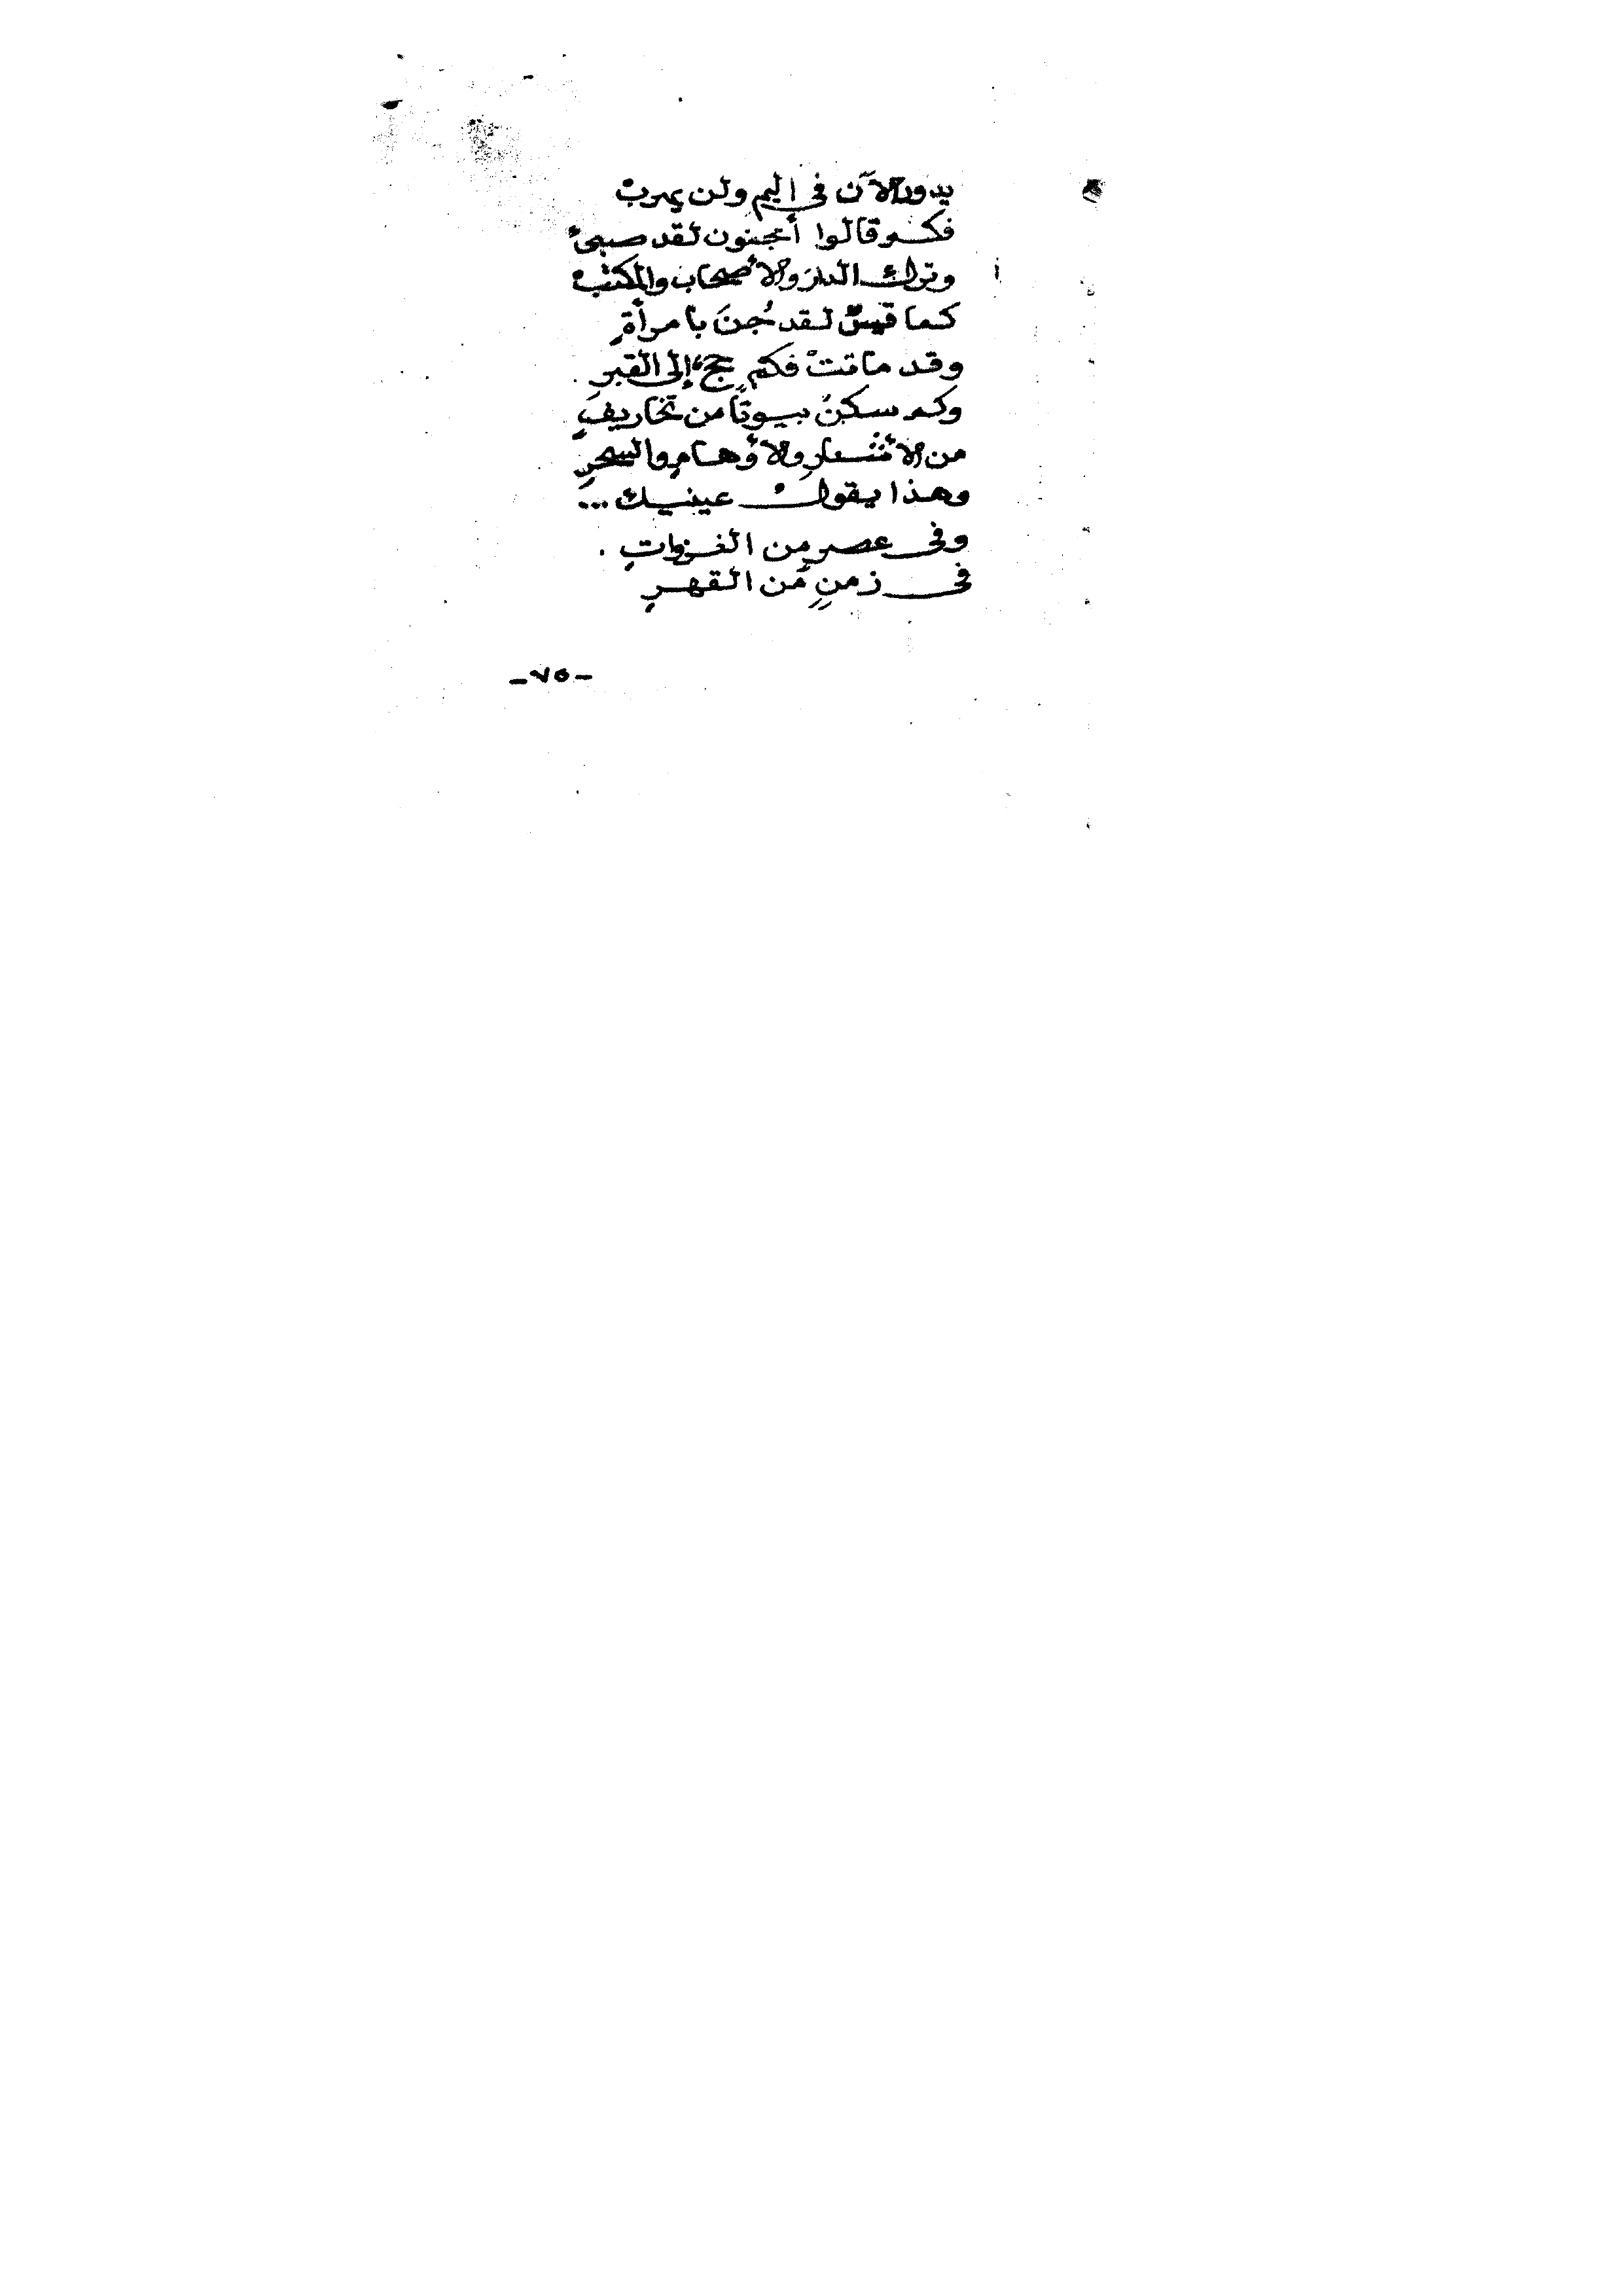 يدور الآن في اليم ولن يهربْ
فكم قالوا أمجنون لقد صبئ
وترك الدارَ والأصحاب والمكتبْ
كما قيسٌ لقد جُنَ بامرأةٍ
وقد ماتتْ فكم حجَّ إلى القبرِ
وكم سكنَ بيوتًا من تخاريفٍ
من الأشعارِ والأوهامِ والسحرِ
وهذا يقول عينيك ...
وفي عصرٍ من الغزواتِ .
في زمنٍ من القهرِ
-٧٥-